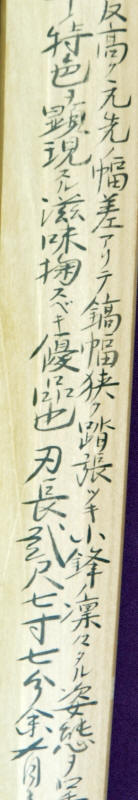 反高ク元先ノ幅差アリテ鎬幅狭ク踏張ツキ小鋒ノ凜々タル姿態ヲ
特色ヲ顕現スル滋味掬スベキ優品也 刃長弐尺七寸七分余